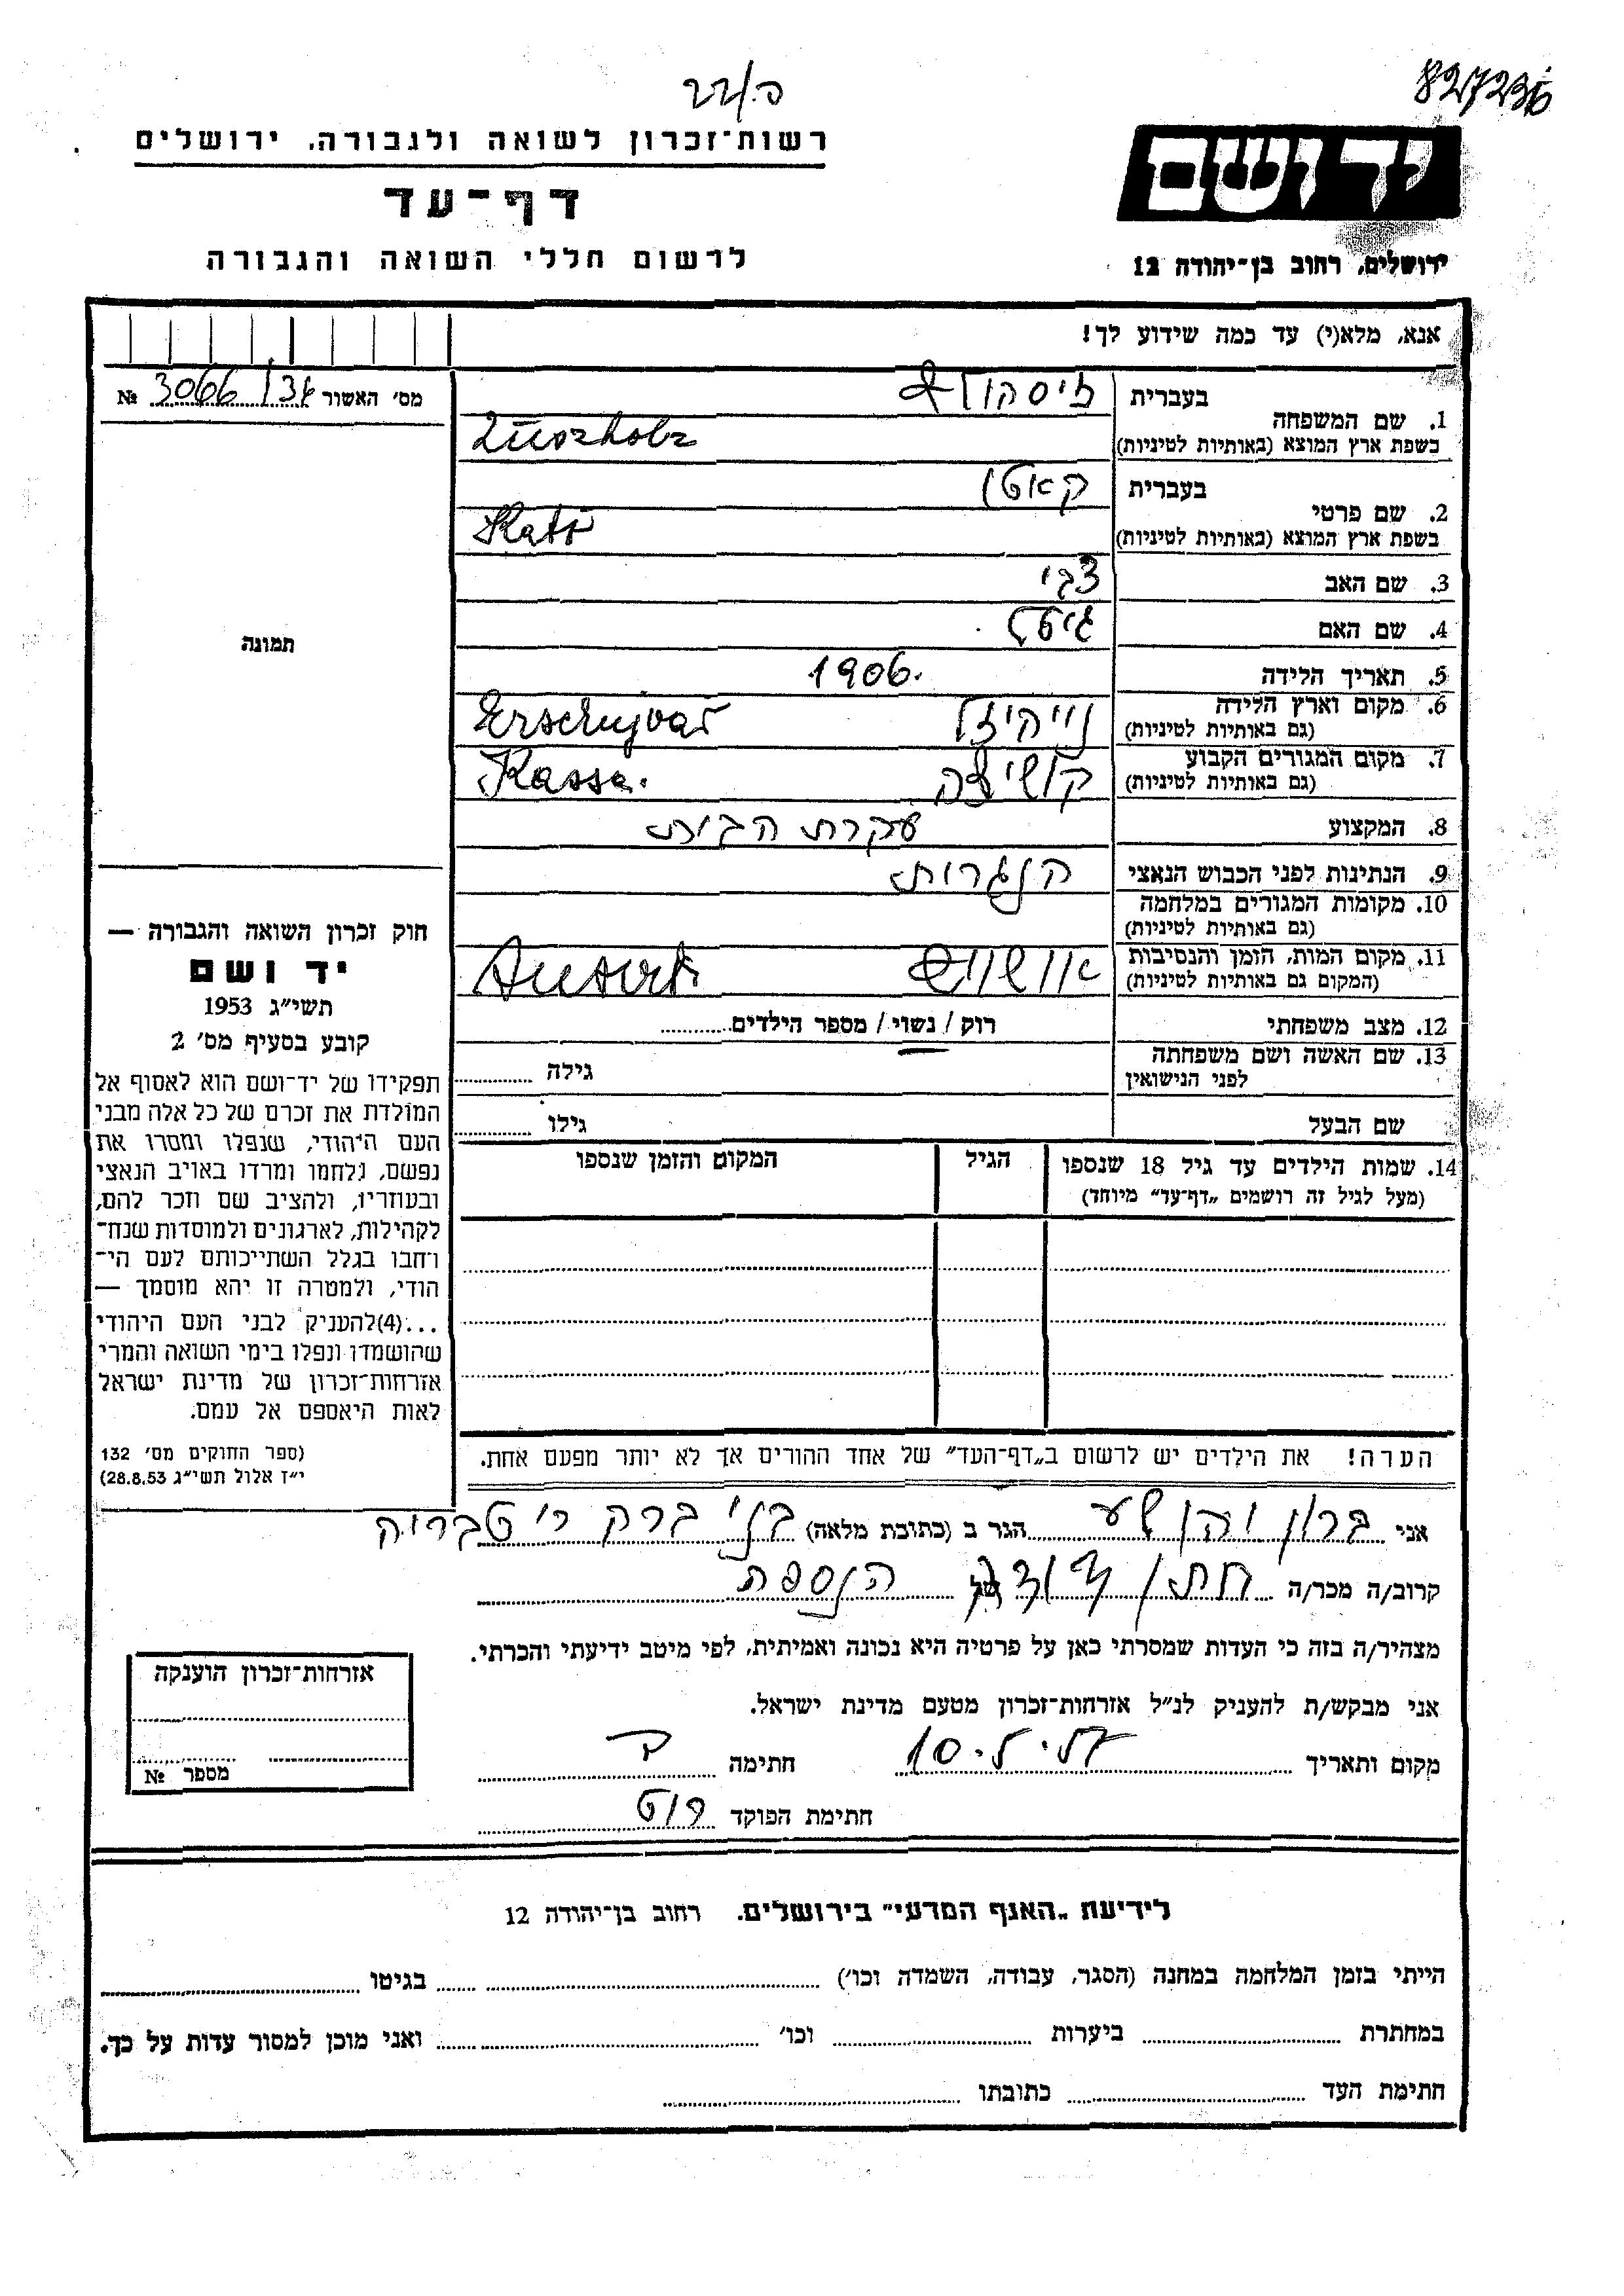 827236
כ./רר
רשות־זכרון לשואה ולגבורה, ירושלים
דף־עד
לרשום חללי השואה והגבורה
יד ושם
ירושלים, רחוב בן־יהודה 12
אנא, מלא(י) עד כמה שידוע לך!
מס׳ האשור 3066 №
בעברית
1. שם המשפחה
בשפת ארץ המוצא (באותיות לטיניות) Züszholz
בעברית קאטי
2. שם פרטי
בשפת ארץ המוצא (באותיות לטיניות) Kati
3. שם האב צבי
4. שם האם גיטל
5. תאריך הלידה 1906.
6. מקום וארץ הלידה
(גם באותיות לטיניות) Erschujvar
7. מקום המגורים הקבוע קושיצה Kassa.
(גם באותיות לטיניות)
8. המקצוע עקרת הבית
9. הנתינות לפני הכבוש הנאצי הונגרית
10. מקומות המגורים במלחמה
(גם באותיות לטיניות)
11. מקום המות, הזמן והנסיבות אושויץ
(המקום גם באותיות לטיניות)
12. מצב משפחתי רוק / נשוי / מספר הילדים
13. שם האשה ושם משפחתה
לפני הנישואין גילה
שם הבעל גילו
14. שמות הילדים עד גיל 18 שנספו הגיל המקום והזמן שנספו
(מעל לגיל זה רושמים „דף־עד״ מיוחד)
הערה! את הילדים יש לרשום ב„דף־העד״ של אחד ההורים אך לא יותר מפעם אחת.
תמונה
חוק זכרון השואה והגבורה —
יד ושם
תשי״ג 1953
קובע בסעיף מס׳ 2
תפקידו של יד־ושם הוא לאסוף אל
המולדת את זכרם של כל אלה מבני
העם היהודי, שנפלו ומסרו את
נפשם, נלחמו ומרדו באויב הנאצי
ובעוזריו, ולהציב שם וזכר להם,
לקהילות, לארגונים ולמוסדות שנח־
רחבו בגלל השתייכותם לעם הי־
הודי, ולמטרה זו יהא מוסמך —
...(4)להעניק לבני העם היהודי
שהושמדו ונפלו בימי השואה והמרי
אזרחות־זכרון של מדינת ישראל
לאות היאספם אל עמם.
(ספר החוקים מס׳ 132
י״ז אלול תשי״ג 28.8.53)
אני ברון יהושע הגר ב (כתובת מלאה) בני ברק
קרוב/ה מכר/ה של הנספה
מצהיר/ה בזה כי העדות שמסרתי כאן על פרטיה היא נכונה ואמיתית, לפי מיטב ידיעתי והכרתי.
אני מבקש/ת להעניק לנ״ל אזרחות־זכרון מטעם מדינת ישראל.
מקום ותאריך חתימה
חתימת הפוקד
אזרחות־זכרון הוענקה
מספר №
לידיעת „האגף המדעי״ בירושלים. רחוב בן־יהודה 12
הייתי בזמן המלחמה במחנה (הסגר, עבודה, השמדה וכו׳) בגיטו
במחתרת ביערות וכו׳ ואני מוכן למסור עדות על כך.
חתימת העד כתובתו